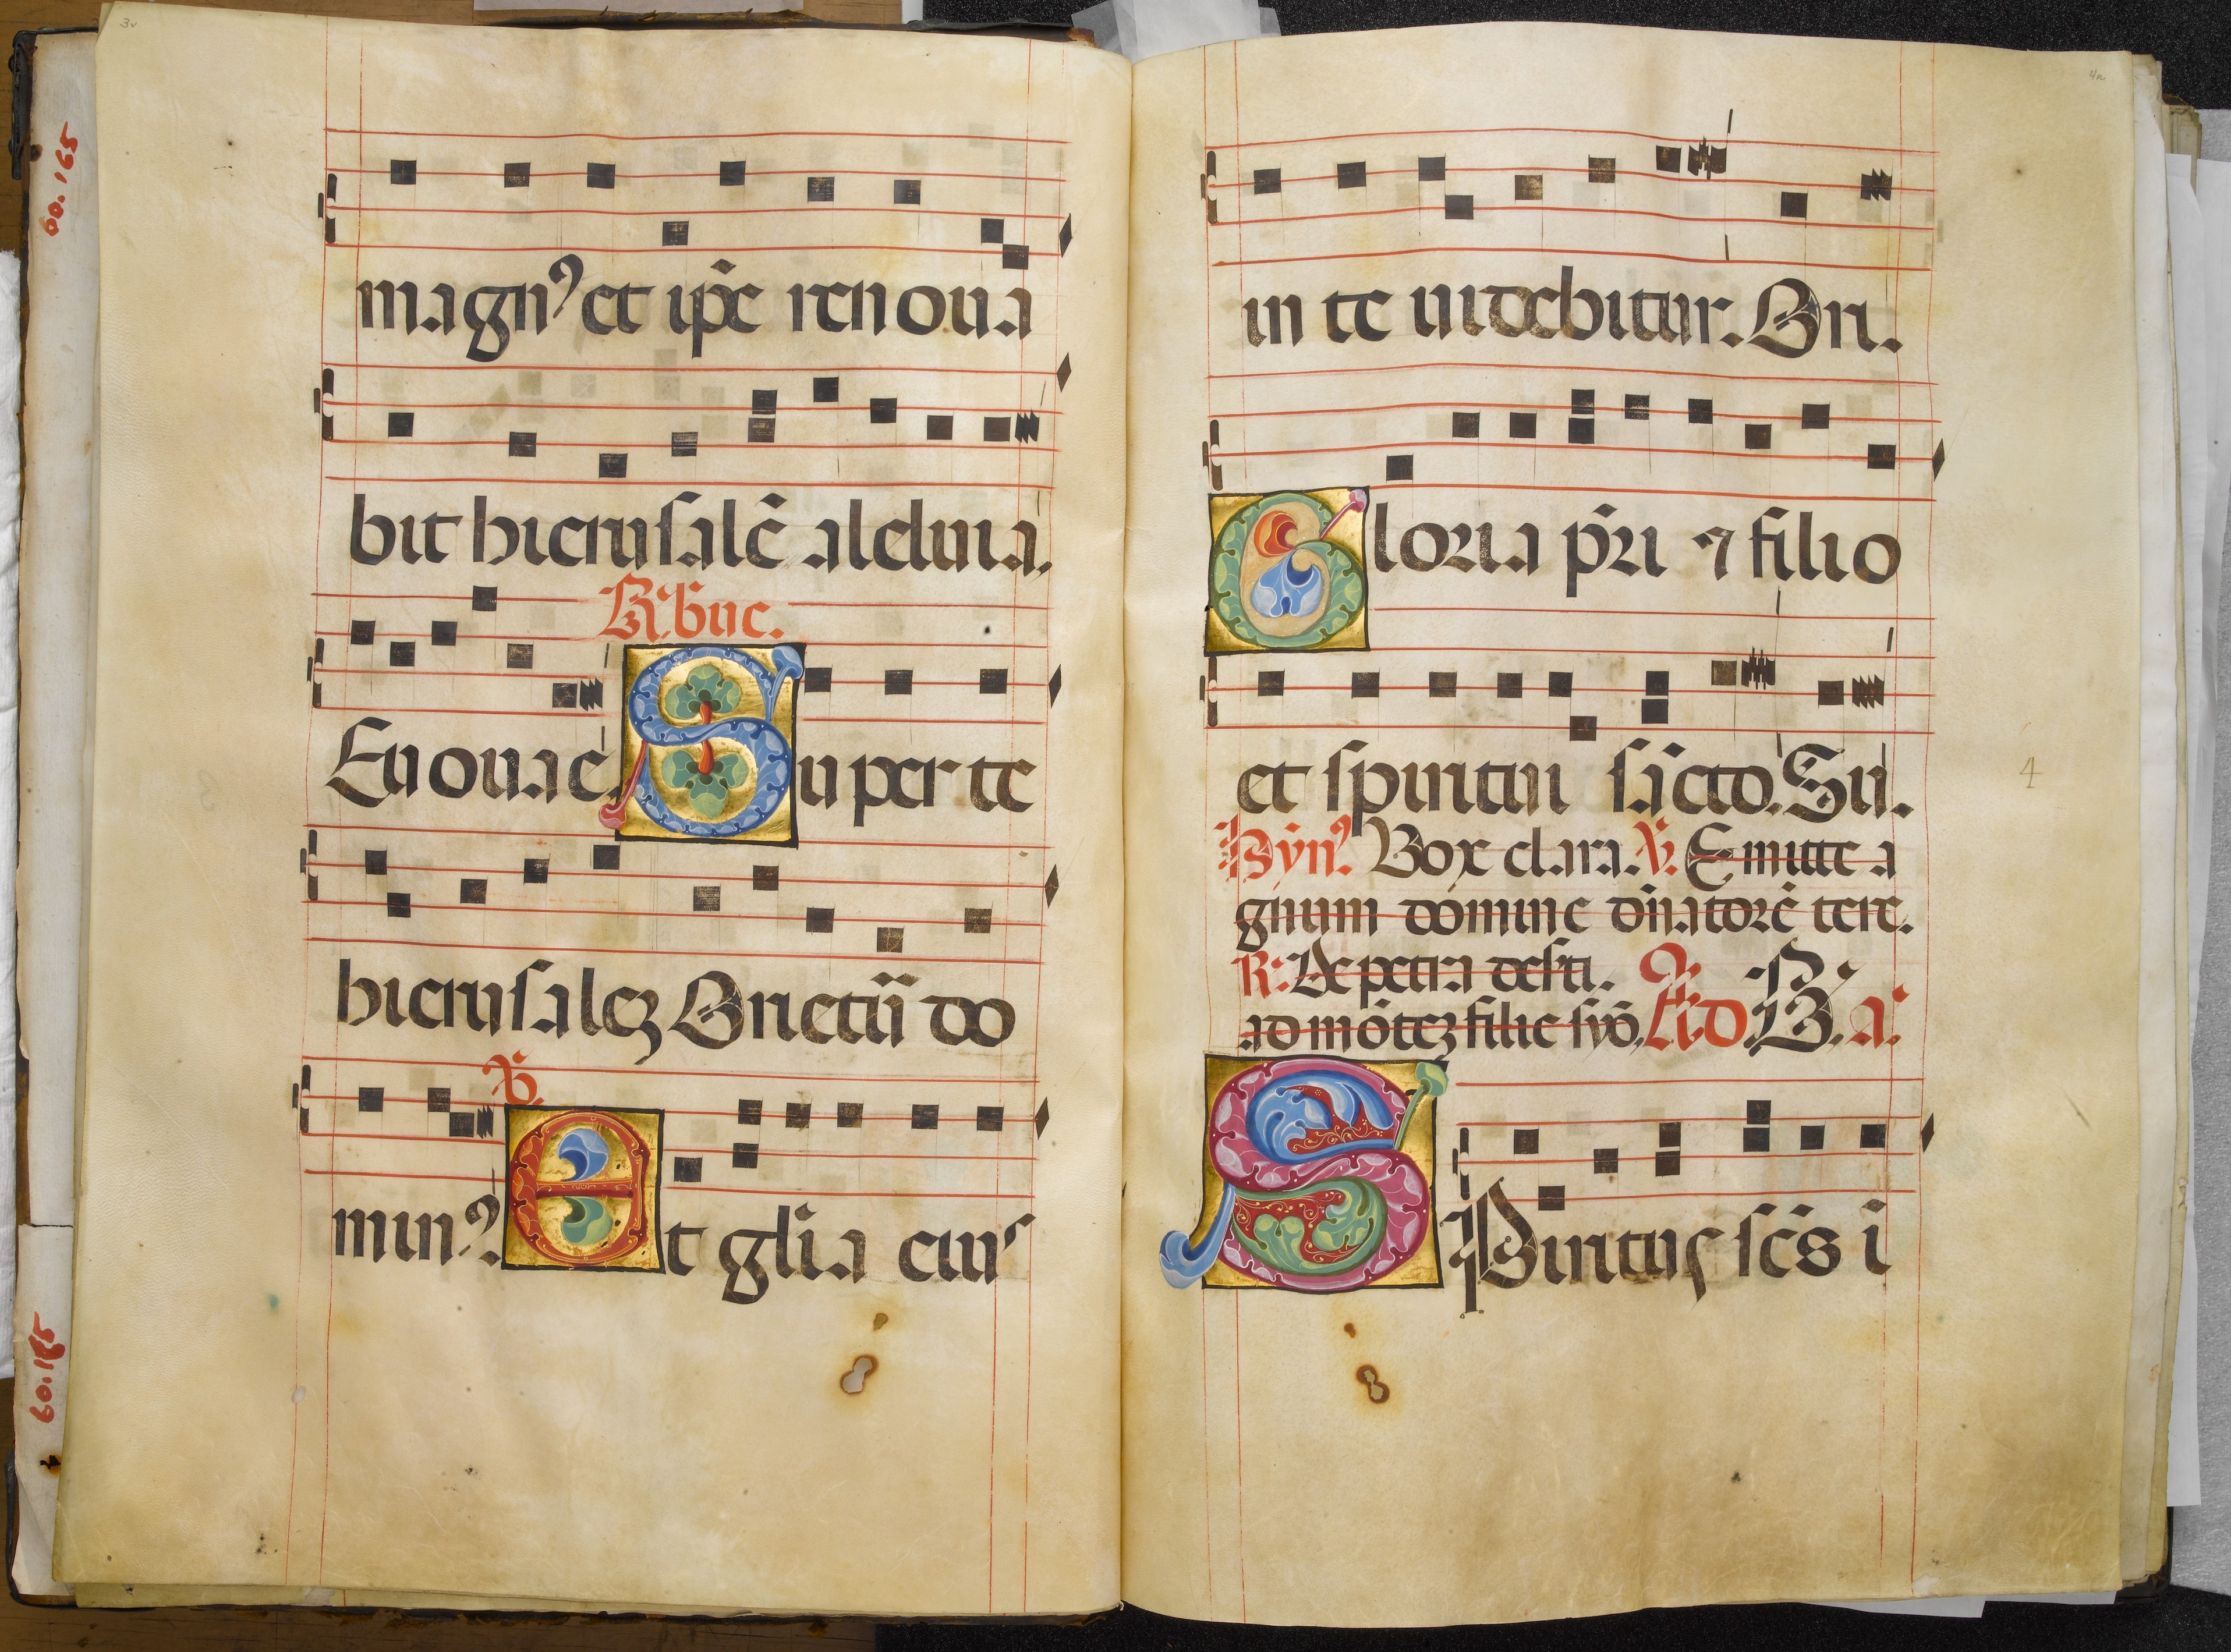 3v
60.165
magnꝰ et ip̄e renoua
bit hierusalē aleluia.
R̃. br̃uc.
Euouae. Super te
hierusaleꝫ Orietũ do
minꝰ. V̇. Et gl̃ia eiuꝰ
60.165
4r
in te uidebitur. Ori.
Gloria pr̃i ⁊ filio
et spiritui sãcto. Su.
4
Hỹnꝰ. Vox clara. V̇. Emitte a
gnum domine dñatorē terre.
R: De petra deserti.
ad mõteꝫ filie syõ.
Spiritus sc̃s i